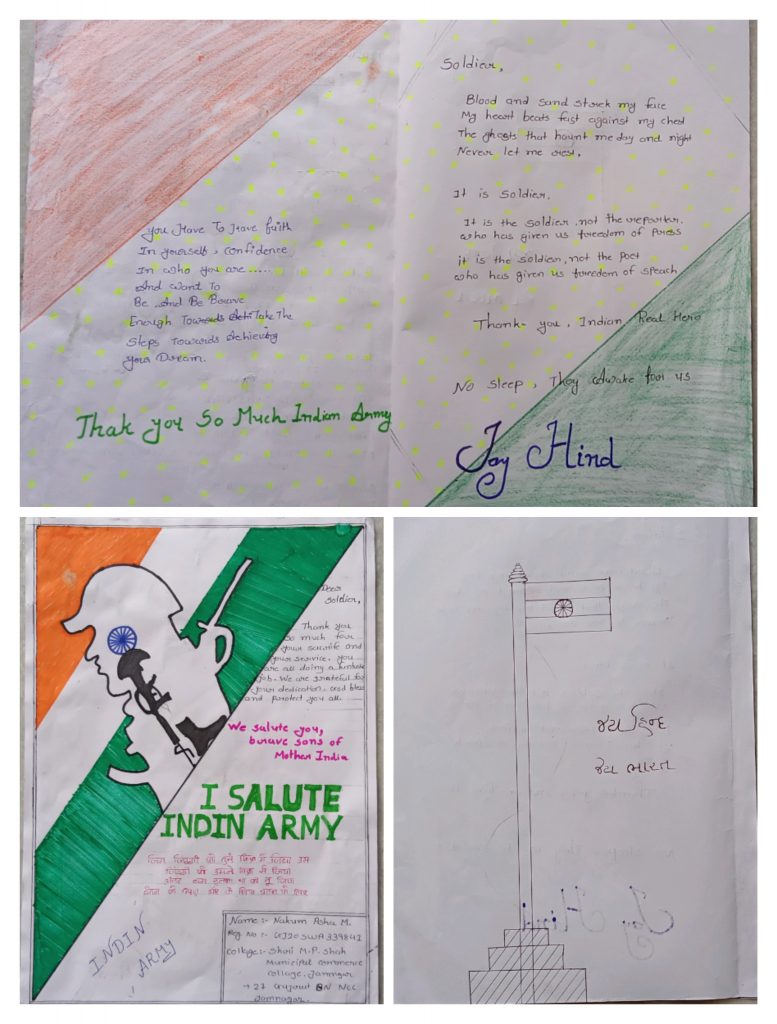 Soldier,
Blood and sand streek my face
My heart beats fast against my chest
The ghosts that haunt me day and night
Never let me rest,
It is Soldier.
It is the soldier, not the reporter.
who has given us freedom of Press
it is the soldier, not the Poet
who has given us freedom of speach
Thank you, Indian Real Hero
No sleep, They awake for us
Jay Hind
You Have To Have faith
In yourself, Confidence
In who you are.....
And want To
Be And Be Brave
Enough Towards Take The
Steps Towards Achieving
your Dream.
Thak you So Much Indian Army
Dear
Soldier,
Thank you
so much for
your sacrifice and
your service, you
are all doing a
job. We are grateful for
your dedication. god bless
and protect you all.
We salute you,
brave sons of
Mother India
I SALUTE
INDIN ARMY
INDIN
ARMY
Name :- Nakum Asha M.
Reg No :- GJ20SWA339841
College :- Shri M.P. Shah
Municipal commerce
collage, Jamnagar
→ 27 Gujarat BN NCC
Jamnagar.
જય હિન્દ
જય ભારત